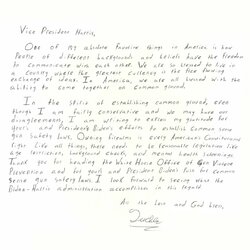 Vice President Harris,
One of my absolute favorite things in America is how
People of different backgrounds and beliefs have the freedom
to communicate with each other. We are so blessed to live in
a country where the greatest currency is the free flowing
exchange of ideas. In America, we are all blessed with the
ability to come together on common ground.
In the spirit of establishing common ground, even
though I am fairly conservative and we may have our
disagreements, I am writing to extend my gratitude for
yours and President Biden's efforts to establish common sense
gun safety laws. Owning firearms is every American's Constitutional
right. Like all things, there needs to be reasonable legislation like
age restrictions, background checks, and mental health screenings.
Thank you for heading the White House Office of Gun Violence
Prevention and for yours and President Biden's push for common
sense gun safety laws. I look forward to seeing what the
Biden-Harris administration accomplishes in this regard.
All the love and God bless,